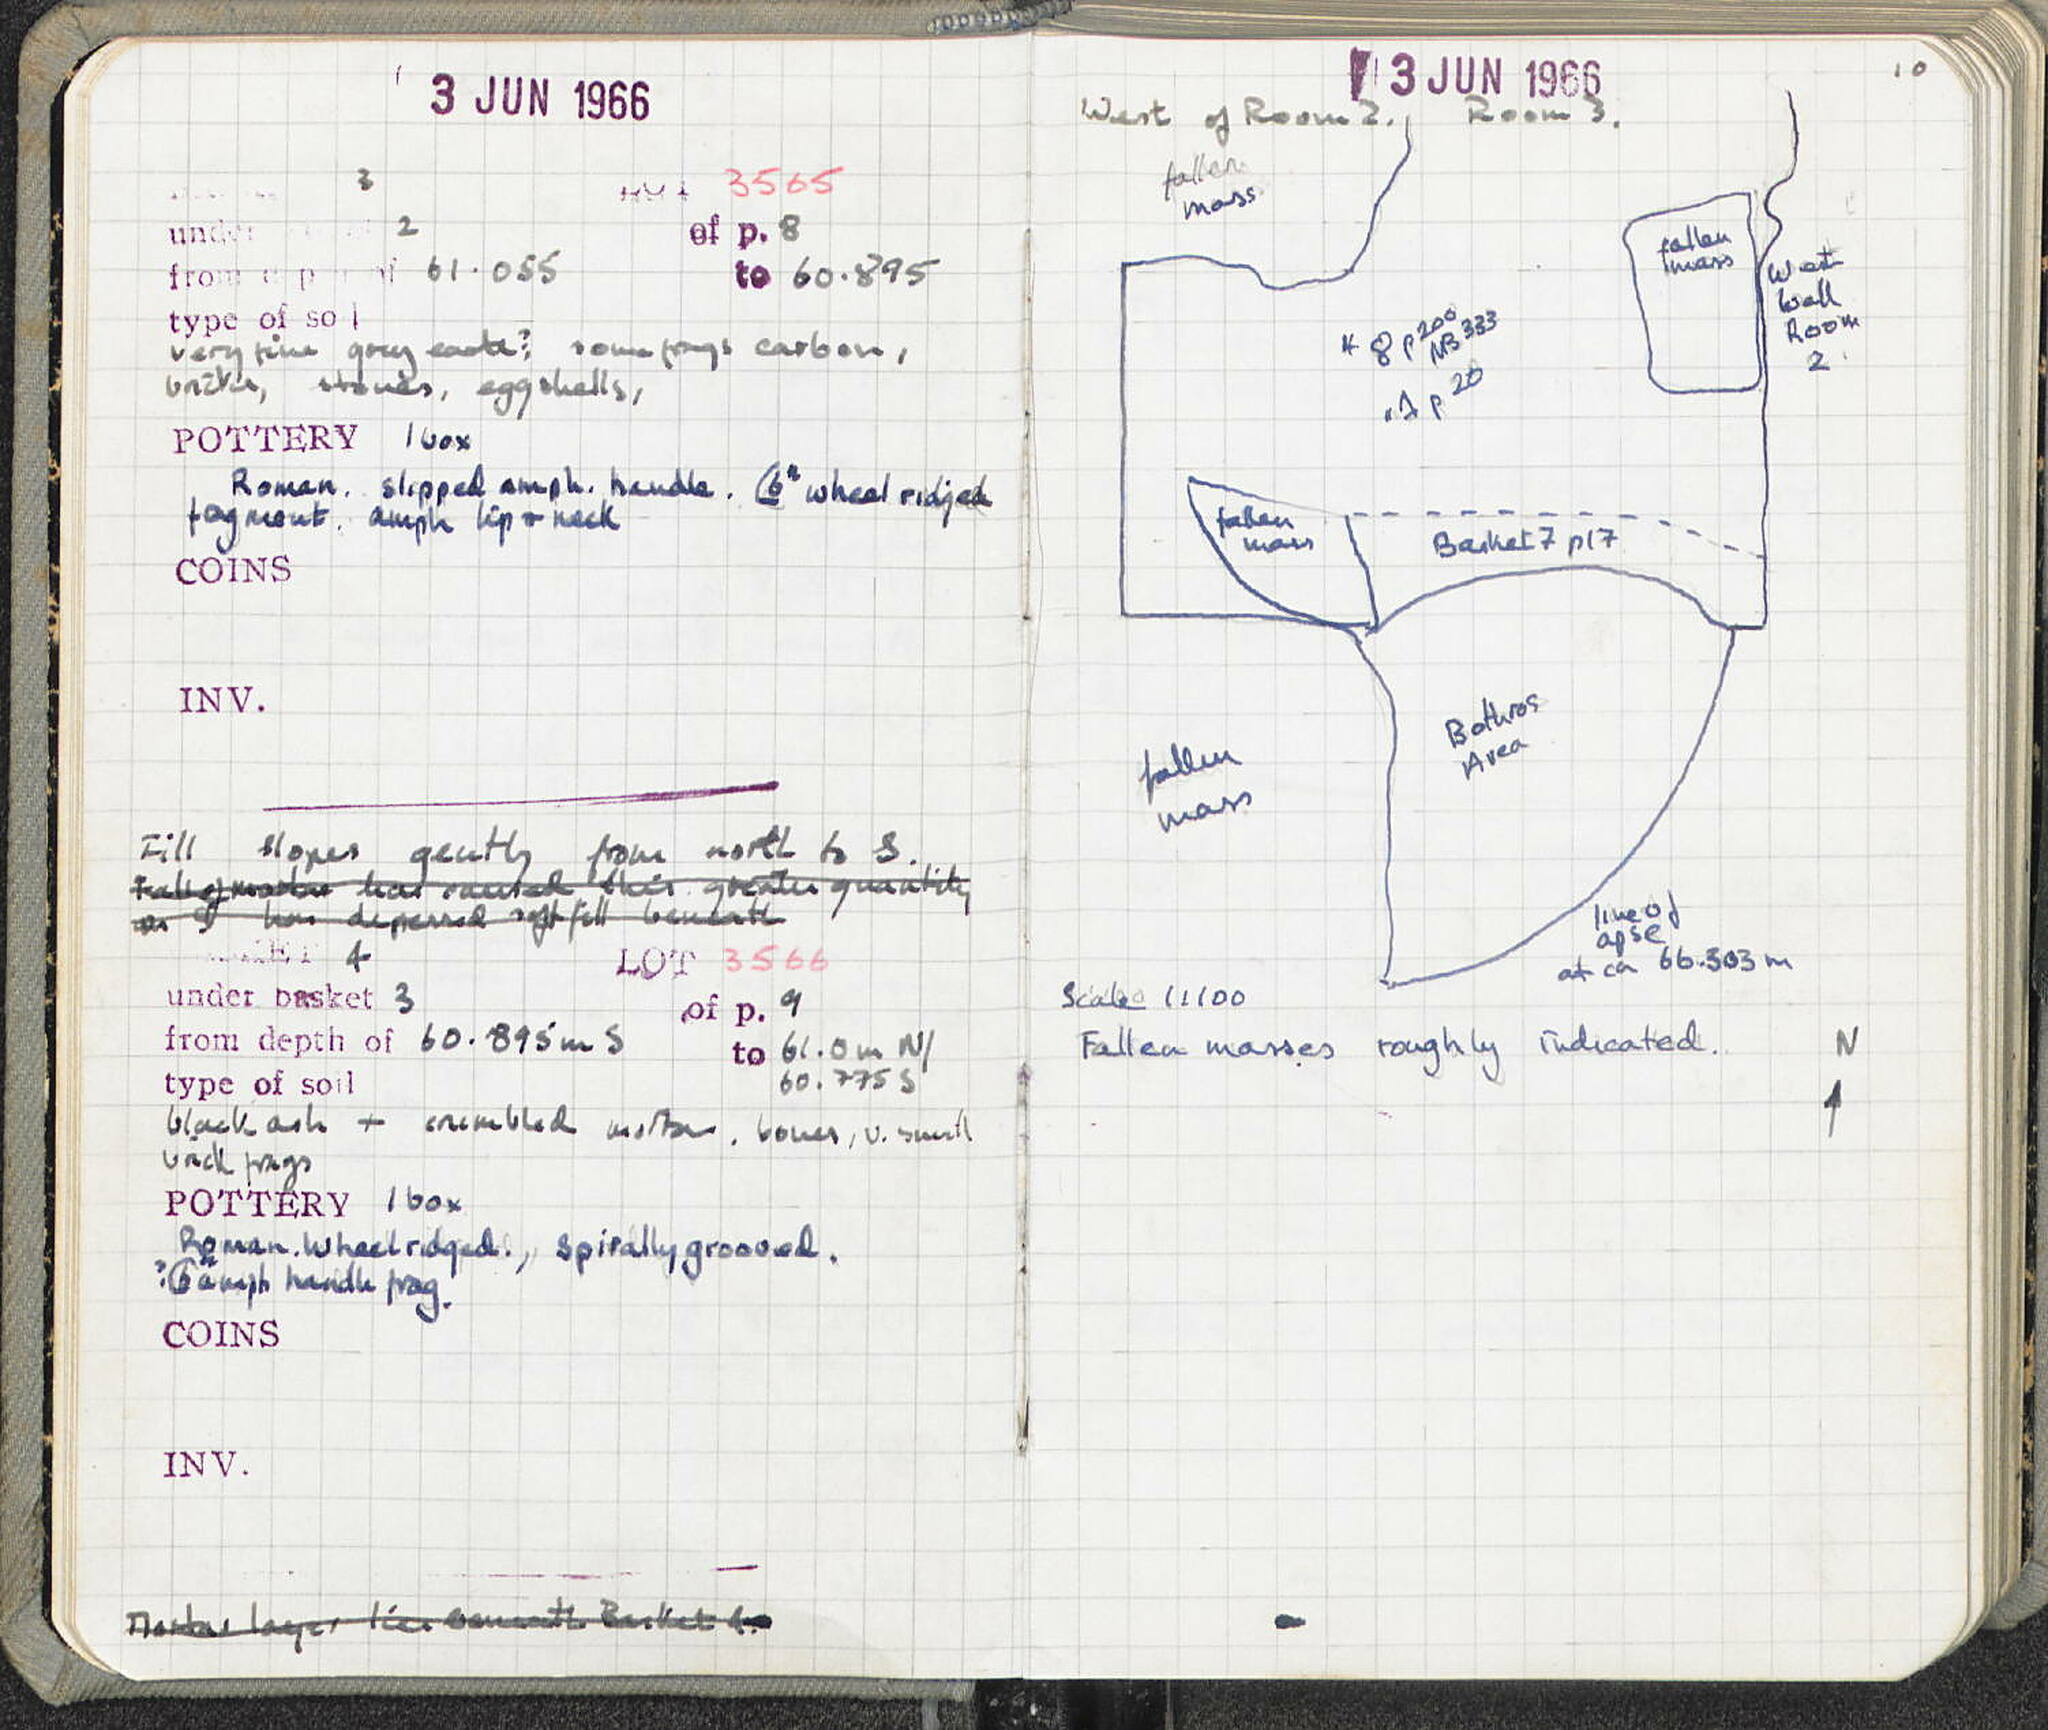 3 JUN 1966
3 LOT 3565
under 2 of p. 8
from depth of 61.055 to 60.895
type of soil
very fine grey earth? some frags carbon,
bricks, stones, eggshells,
POTTERY 1 box
Roman. slipped amph. handle. wheel ridged
fragment. amph lip + neck
COINS
INV.
Fill slopes gently from north to S.
Fall of mortar has caused this greater quantity
on S has depressed soft fill beneath
BASKET 4 LOT 3566
under basket 3 of p. 9
from depth of 60.895m S to 61.0m N/
60.775 S
type of soil
black ash + crumbled mortar, bones, v. small
brick frags
POTTERY 1 box
Roman. Wheel ridged., spirally grooved.
amph handle frag.
COINS
INV.
Mortar layer lies beneath Basket 4.
3 JUN 1966
10
West of Room 2. Room 3.
fallen
mass
fallen
mass
West
Wall
Room
2
8 p 200
NB 333
p 20
fallen
mass
Basket 7 p17
Bothros
Area
fallen
mass
line of
apse
at ca 66.303m
Scale 1:100
Fallen masses roughly indicated.
N